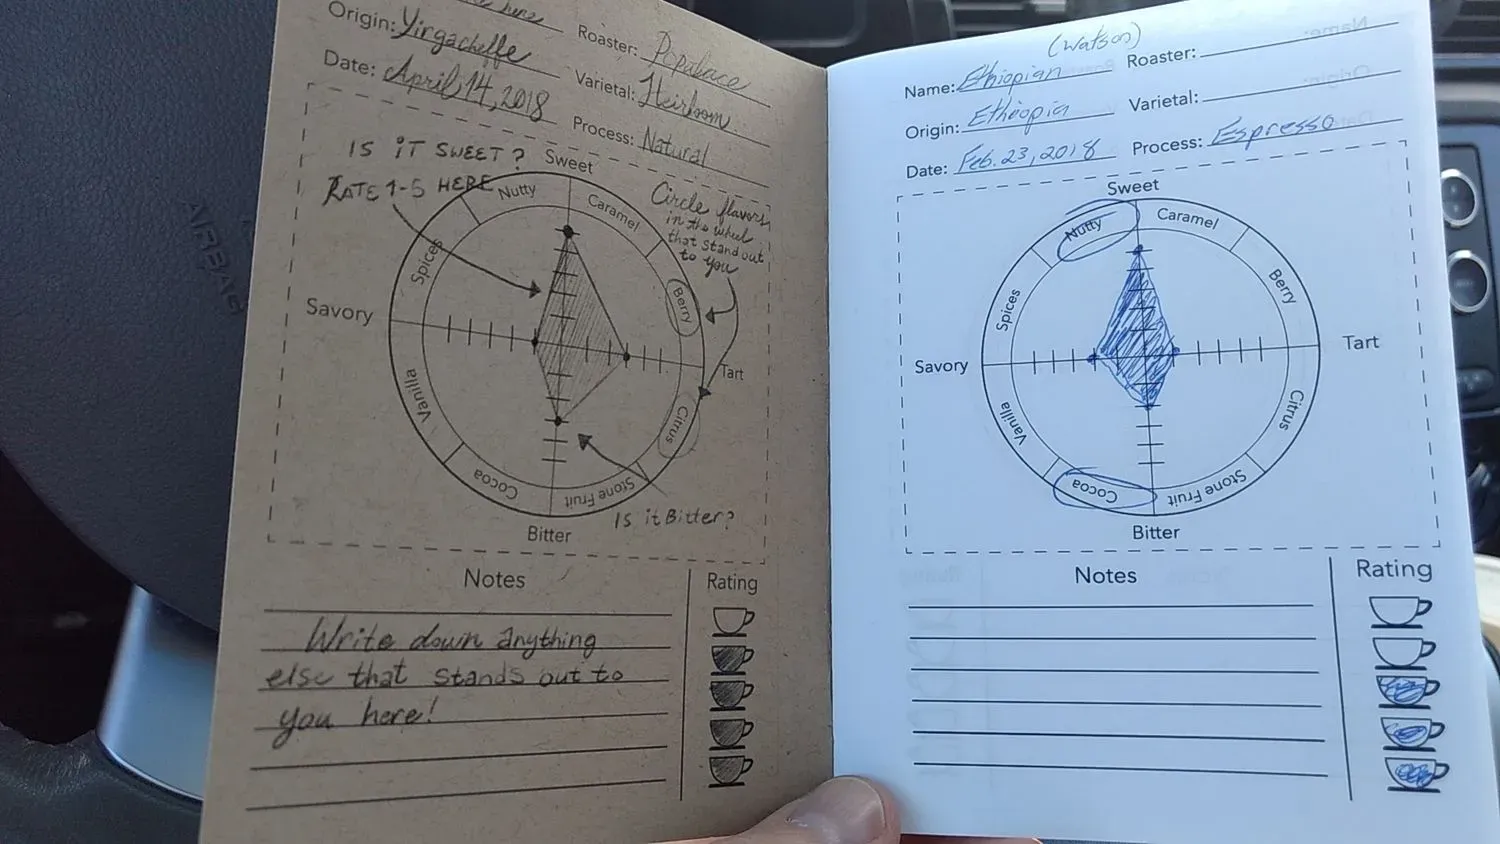 here Roaster: Populace
Origin: Yirgacheffe Varietal: Heirloom
Date: April, 14, 2018 Process: Natural
IS IT SWEET?
RATE 1-5 HERE
Circle flavors
in the wheel
that stand out
to you
Sweet
Nutty
Caramel
Spices
Berry
Savory
Tart
Vanilla
Citrus
Cocoa
Stone Fruit
Bitter
Is it Bitter?
Notes
Rating
Write down anything
else that stands out to
you here!
(Watson)
Name: Ethiopian Roaster:
Origin: Ethiopia Varietal:
Date: Feb. 23, 2018 Process: Espresso
Sweet
Nutty
Caramel
Spices
Berry
Savory
Tart
Vanilla
Citrus
Cocoa
Stone Fruit
Bitter
Notes
Rating
AIRBAG